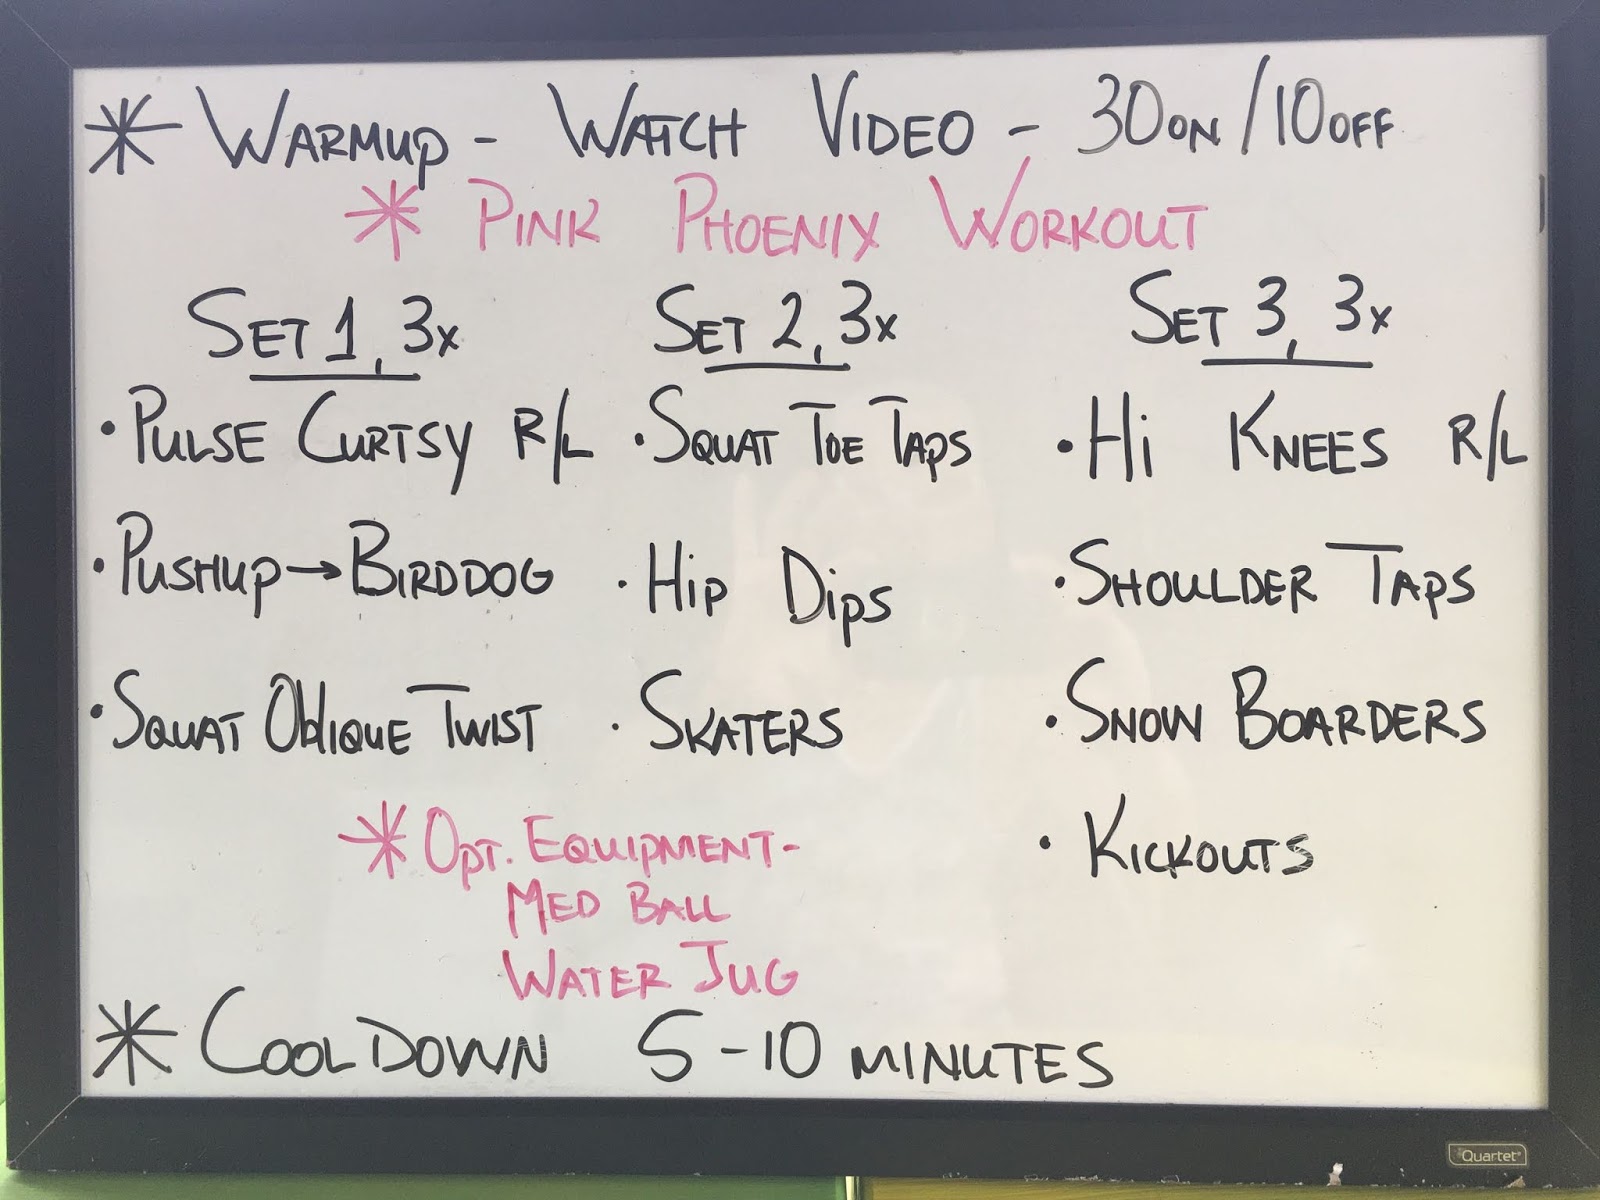 * WARMUP - WATCH VIDEO - 30 ON / 10 OFF
* PINK PHOENIX WORKOUT
SET 1, 3x
• PULSE CURTSY R/L
• PUSHUP → BIRDDOG
• SQUAT OBLIQUE TWIST
SET 2, 3x
• SQUAT TOE TAPS
• HIP DIPS
• SKATERS
SET 3, 3x
• Hi KNEES R/L
• SHOULDER TAPS
• SNOW BOARDERS
• KICKOUTS
* OPT. EQUIPMENT-
MED BALL
WATER JUG
* COOLDOWN 5-10 MINUTES
Quartet®